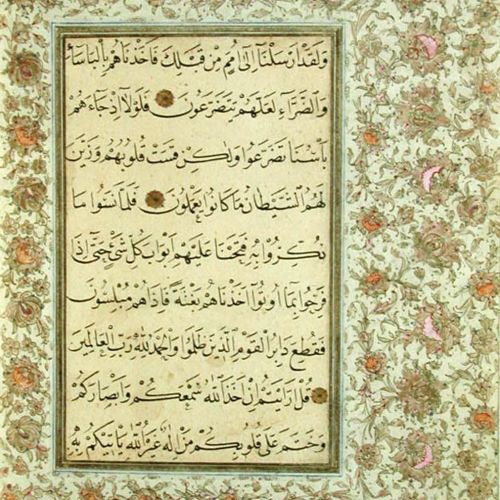 ولقد ارسلنآ الى امم من قبلك فاخذناهم بالباسآء
والضرآء لعلهم يتضرعون فلولا اذ جاءهم
باسنا تضرعوا ولكن قست قلوبهم وزين
لهم الشيطان ما كانوا يعملون فلما نسوا ما
ذكروا به فتحنا عليهم ابواب كل شئ حتى اذا
فرحوا بما اوتوا اخذناهم بغتة فاذاهم مبلسون
فقطع دابر القوم الذين ظلموا والحمد لله رب العالمين
قل ارايتم ان اخذ الله سمعكم وابصاركم
وختم على قلوبكم من اله غير الله ياتيكم به